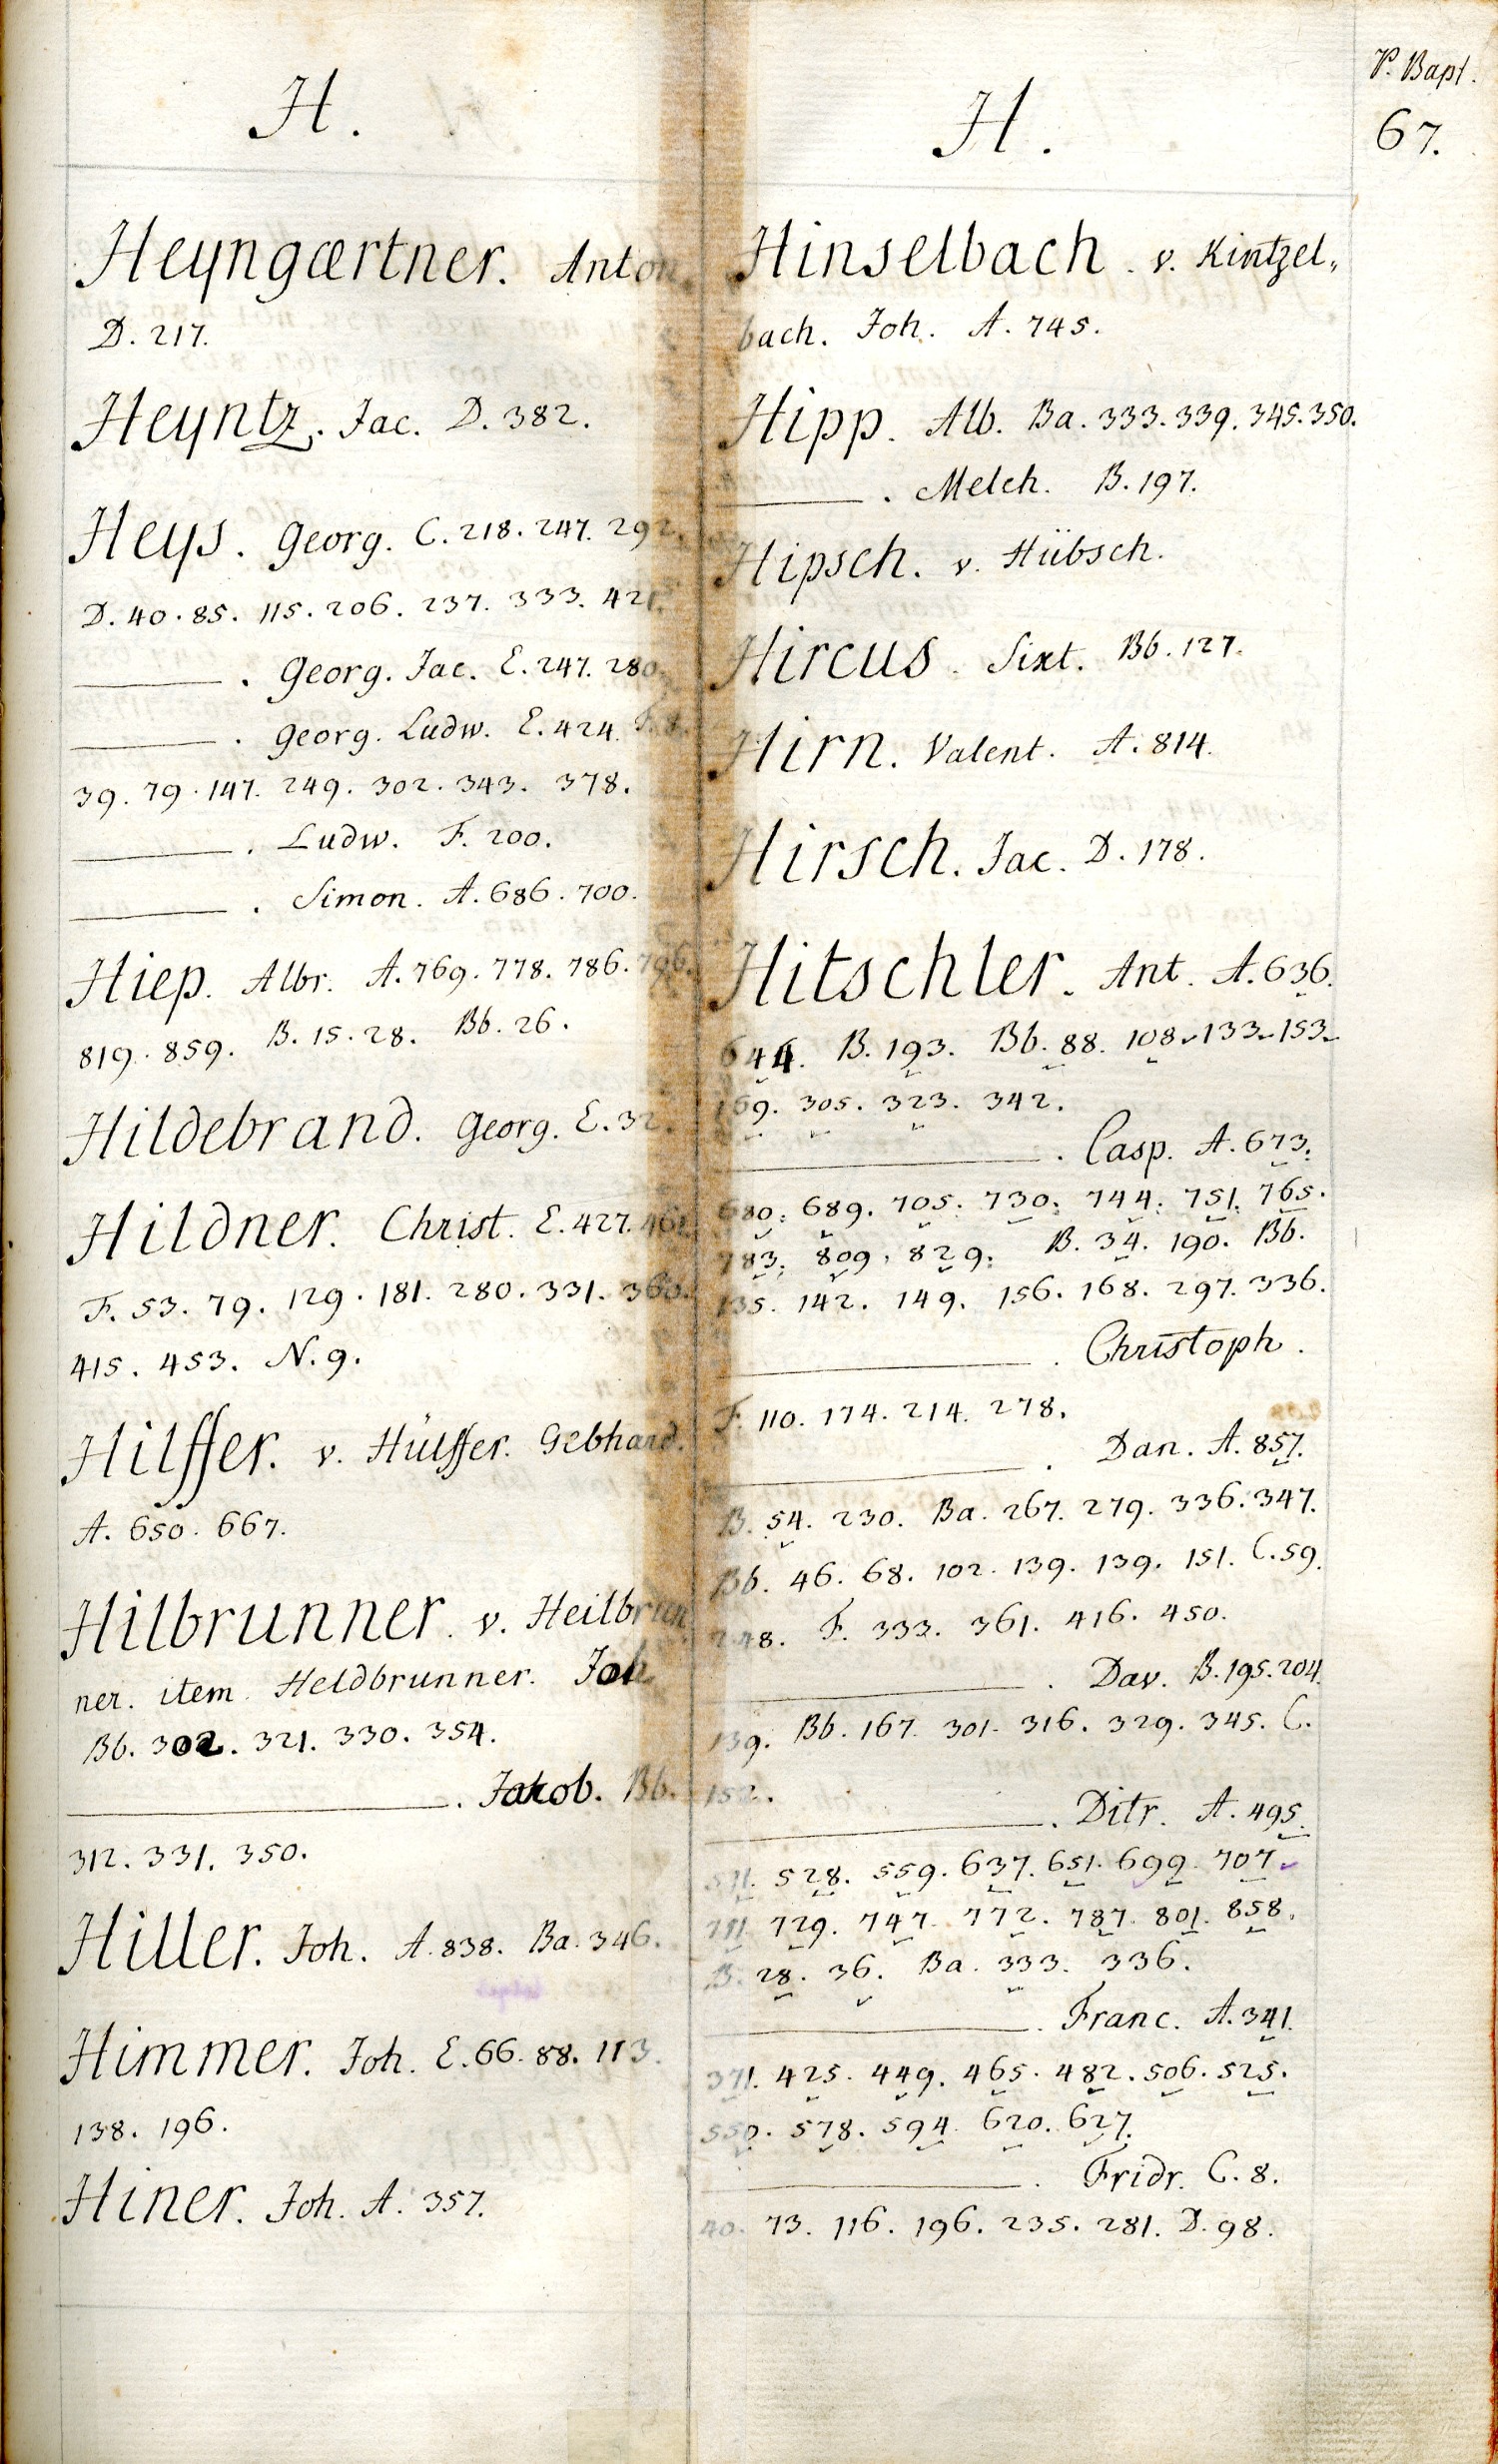 P. Bapt.
67.
H.
Heyngærtner. Anton.
D. 217.
Heyntz. Jac. D. 382.
Heys. Georg. C. 218. 247. 292.
D. 40. 85. 115. 206. 237. 333. 421.
———. Georg. Jac. E. 247. 280.
———. Georg. Ludw. E. 424.
39. 79. 147. 249. 302. 343. 378.
———. Ludw. F. 200.
———. Simon. A. 686. 700.
Hiep. Albr. A. 769. 778. 786. 796.
819. 859. B. 15. 28. Bb. 26.
Hildebrand. Georg. E. 32.
Hildner. Christ. E. 427. 461.
F. 53. 79. 129. 181. 280. 331. 360.
415. 453. N. 9.
Hilffer. v. Hülffer. Gebhard.
A. 650. 667.
Hilbrunner. v. Heilbrun
ner. item. Heldbrunner. Joh
Bb. 302. 321. 330. 354.
———. Jakob. Bb.
312. 331. 350.
Hiller. Joh. A. 838. Ba. 346.
Himmer. Joh. E. 66. 88. 113.
138. 196.
Hiner. Joh. A. 357.
H.
Hinselbach. v. Kintzel„
bach. Joh. A. 745.
Hipp. Alb. Ba. 333. 339. 345. 350.
———. Melch. B. 197.
Hipsch. v. Hübsch.
Hircus. Sixt. Bb. 127.
Hirn. Valent. A. 814.
Hirsch. Jac. D. 178.
Hitschler. Ant. A. 636.
644. B. 193. Bb. 88. 108. 133. 153.
169. 305. 323. 342.
———. Casp. A. 673.
680. 689. 705. 730. 744. 751. 765.
783. 809. 829. B. 34. 190. Bb.
135. 142. 149. 156. 168. 297. 336.
———. Christoph.
F. 110. 174. 214. 278.
———. Dan. A. 857.
B. 54. 230. Ba. 267. 279. 336. 347.
Bb. 46. 68. 102. 139. 139. 151. C. 59.
248. F. 333. 361. 416. 450.
———. Dav. B. 195. 204.
139. Bb. 167. 301. 316. 329. 345. C.
152.
———. Ditr. A. 495.
511. 528. 559. 637. 651. 699. 707.
711. 729. 747. 772. 787. 801. 858.
B. 28. 36. Ba. 333. 336.
———. Franc. A. 341.
371. 425. 449. 465. 482. 506. 525.
550. 578. 594. 620. 627.
———. Fridr. C. 8.
40. 73. 116. 196. 235. 281. D. 98.